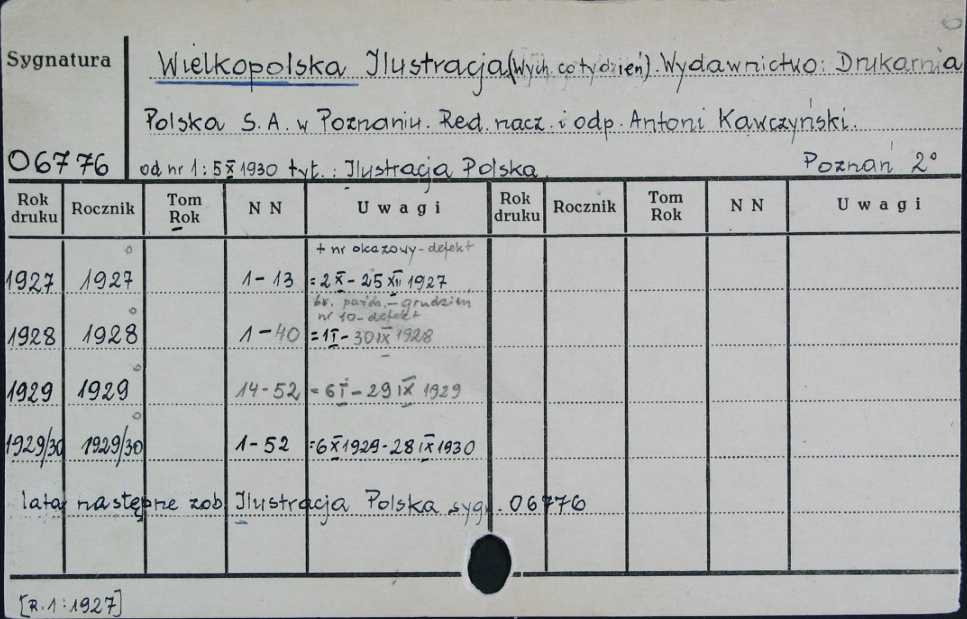 Sygnatura
Wielkopolska Ilustracja (Wych. co tydzień). Wydawnictwo: Drukarnia
Polska S.A. w Poznaniu. Red. nacz. i odp. Antoni Kawczyński.
06776 od nr 1 : 5 X 1930 tyt. : Ilustracja Polska. Poznań 2°
Rok druku Rocznik Tom Rok N N Uwagi Rok druku Rocznik Tom Rok N N Uwagi
+ nr okazowy - defekt
1927 1927 1 - 13 = 2 X - 25 XII 1927
br. paźdz. - grudzień
nr 10 - defekt
1928 1928 1 - 40 = 1 I - 30 IX 1928
1929 1929 14 - 52 = 6 I - 29 IX 1929
1929/30 1929/30 1 - 52 = 6 X 1929 - 28 IX 1930
lata następne zob. Ilustracja Polska sygn. 06776
[R. 1 : 1927]